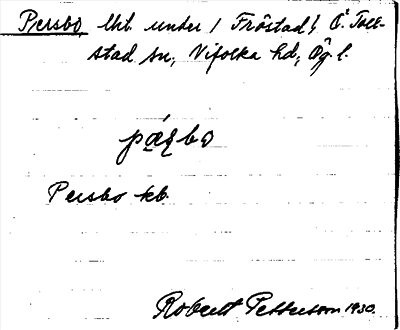 Persbo, lht. under 1 Fröstad, Ö. Toll-
stad sn, Vifolka hd, Ög. l.
pä́ʂbo
Persbo kb.
Robert Pettersson 1930.